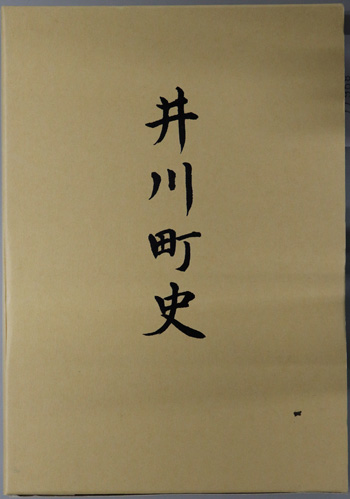 井川町史